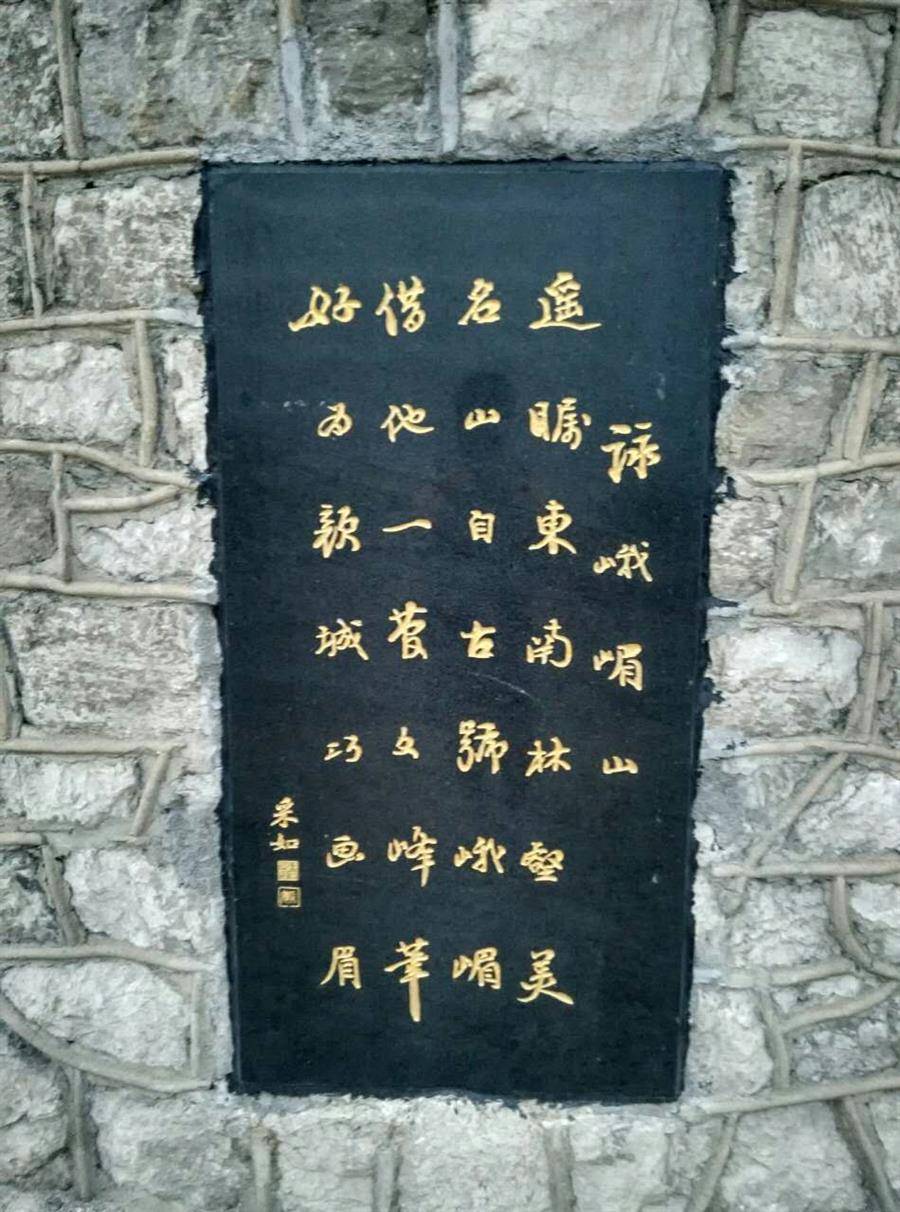 詠峨嵋山
遥瞩東南林壑美
名山自古號峨嵋
借他一管文峰筆
好为颜城巧画眉
采如